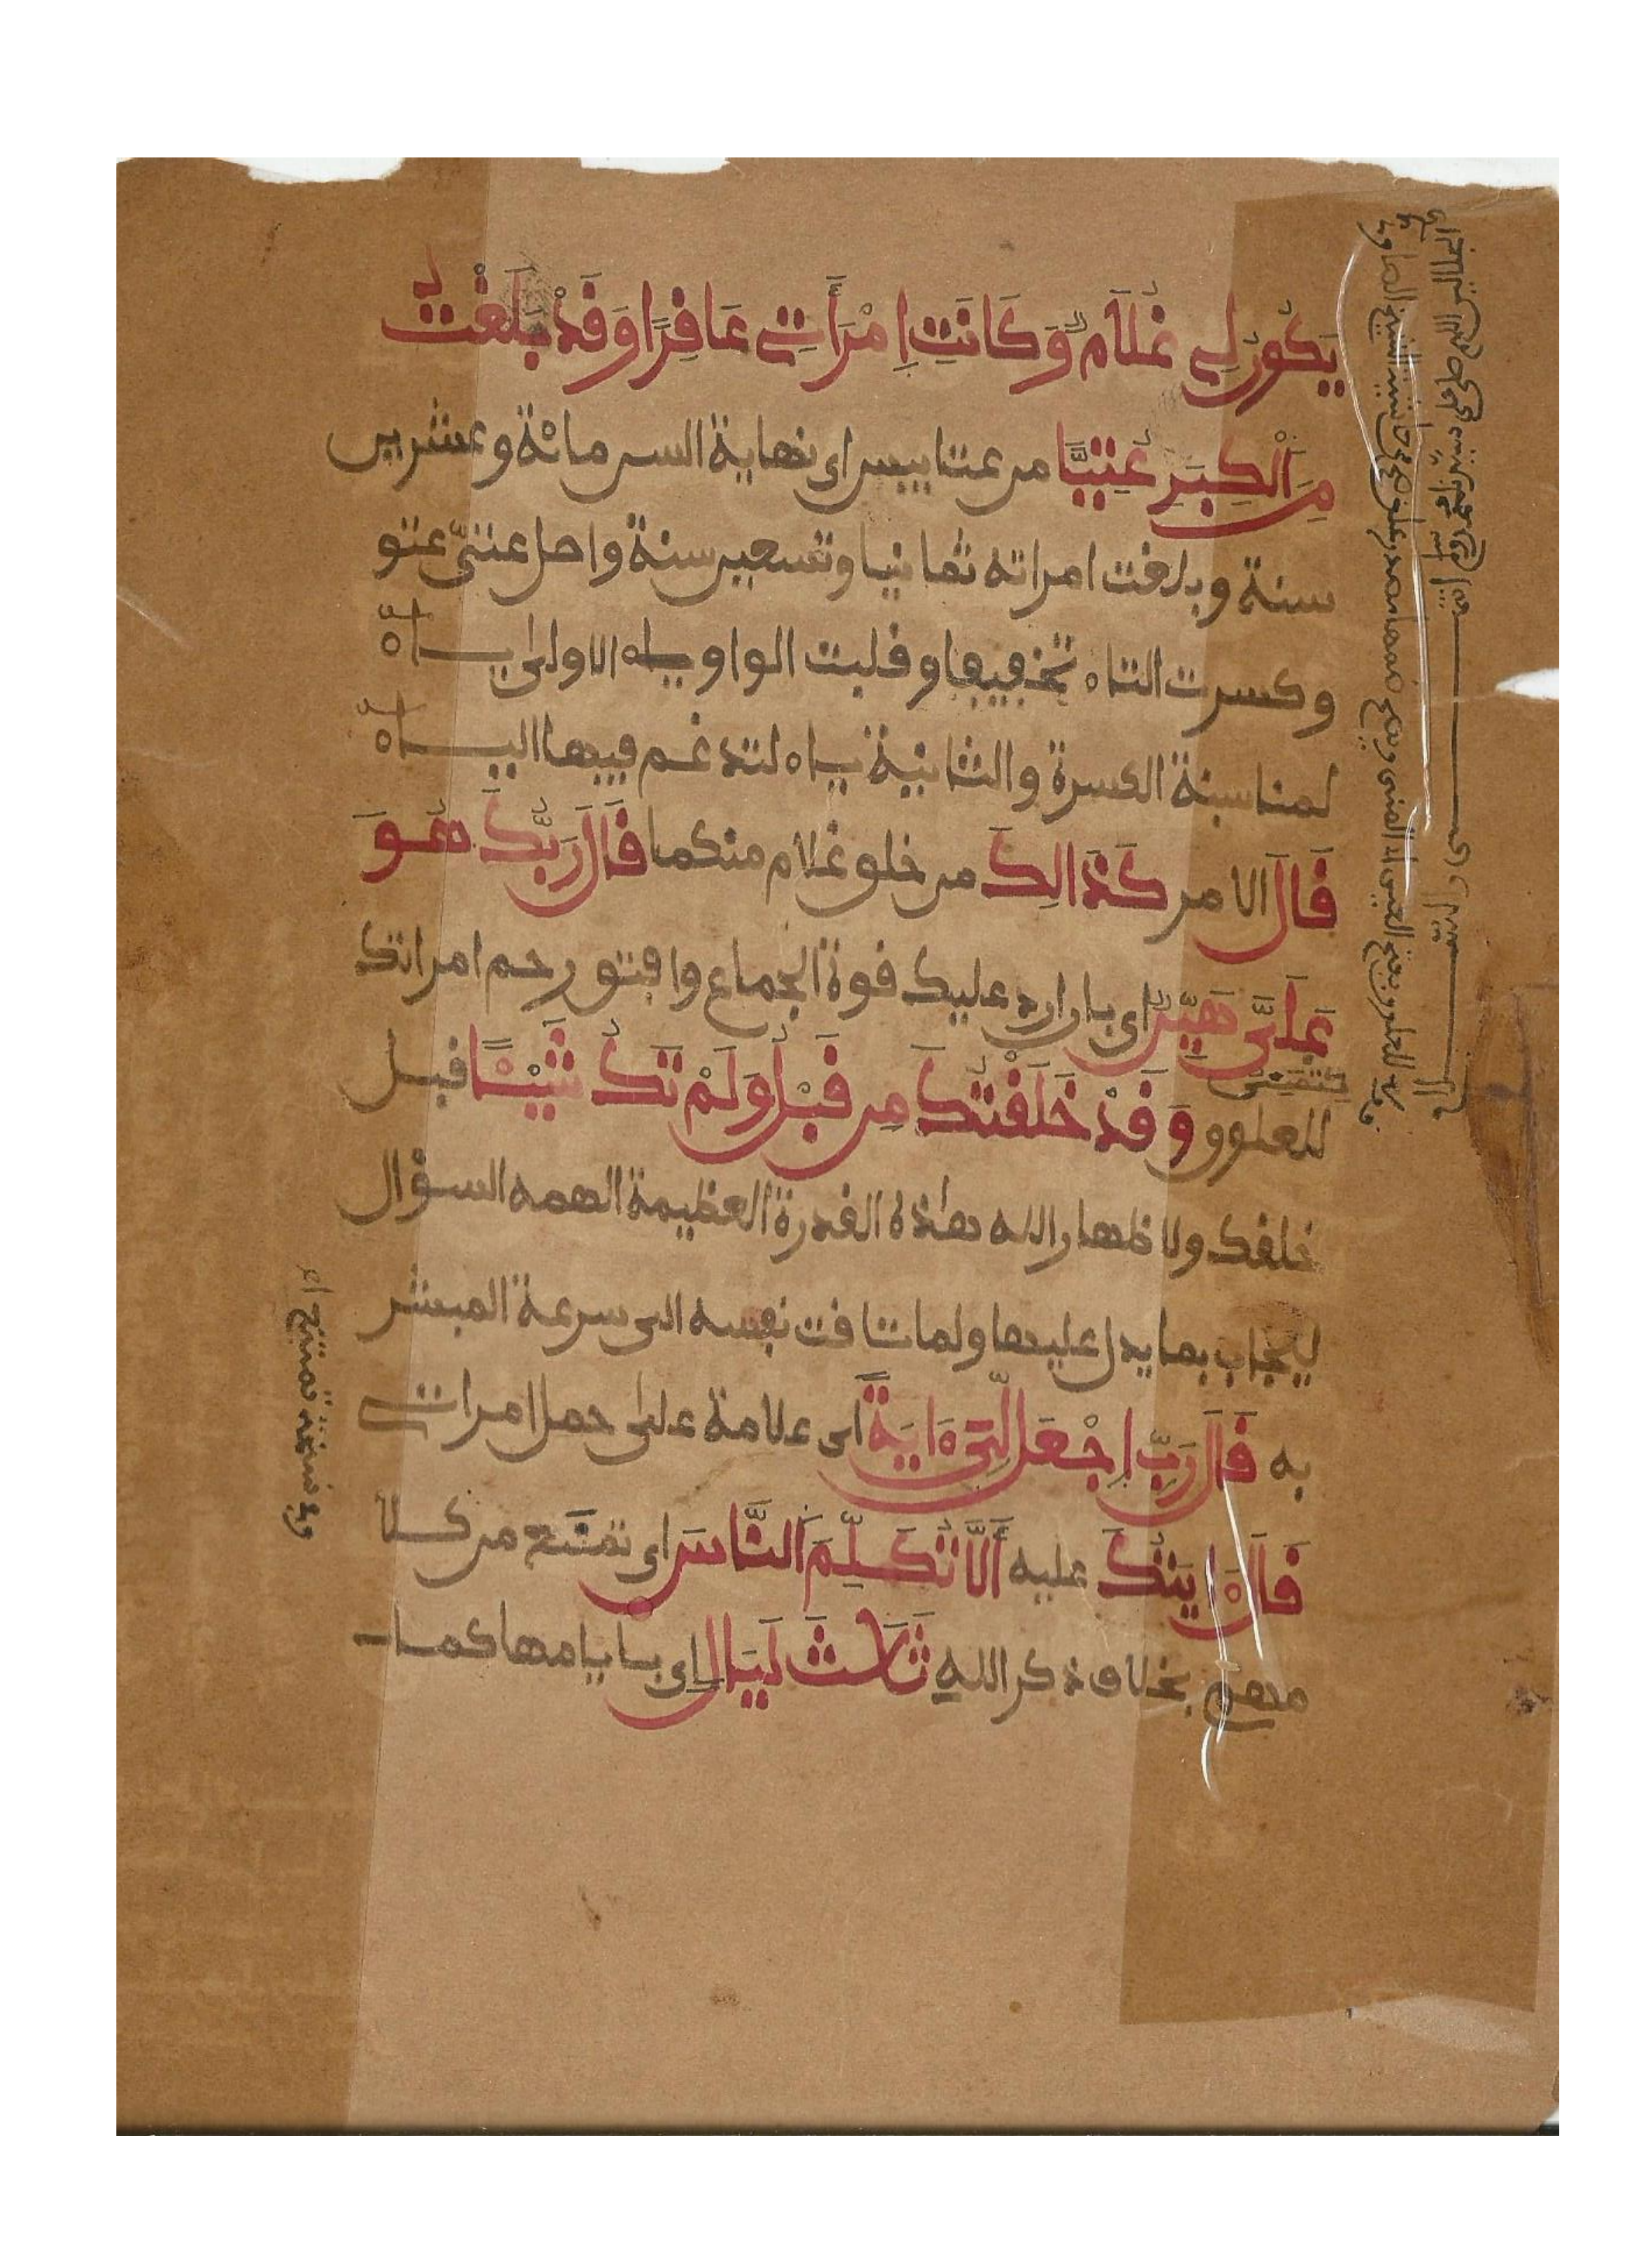 يَكُونُ لِي غُلَامٌ وَكَانَتِ اِمْرَأَتِي عَاقِرًا وَقَدْ بَلَغْتُ
مِنَ الْكِبَرِ عُتِيًّا من عتا يبس اى نهاية السن مائة وعشرين
سنة وبلغت امراته ثمانيا وتسعين سنة واصل عتيّ عتو
وكسرت التاء تخفيفا وقلبت الواو الاولى ياء
لمناسبة الكسرة والثانية ياء لتدغم فيها الياء
قَالَ الامر كَذَالِكَ من خلق غلام منكما قَالَ رَبُّكَ هُوَ
عَلَيَّ هَيِّنٌ اى بان ارد عليك قوة الجماع وافتق رحم امراتك
للعلوق وَقَدْ خَلَقْتُكَ مِن قَبْلُ وَلَمْ تَكُ شَيْئًا قبل
خلقك ولاظهار الله هذه القدرة العظيمة الهمه السؤال
ليجاب بما يدل عليها ولما تاقت نفسه الى سرعة المبشر
به قَالَ رَبِّ اِجْعَل لِّيَ ءَايَةً اى علامة على حمل امراتي
قَالَ ءَايَتُكَ عليه أَلَّا تُكَلِّمَ النَّاسَ اى تمتنع من كلا
مهم بخلاف ذكر الله ثَلَاثَ لَيَالٍ اى بايامها كما
وفي نسخة تمتنع